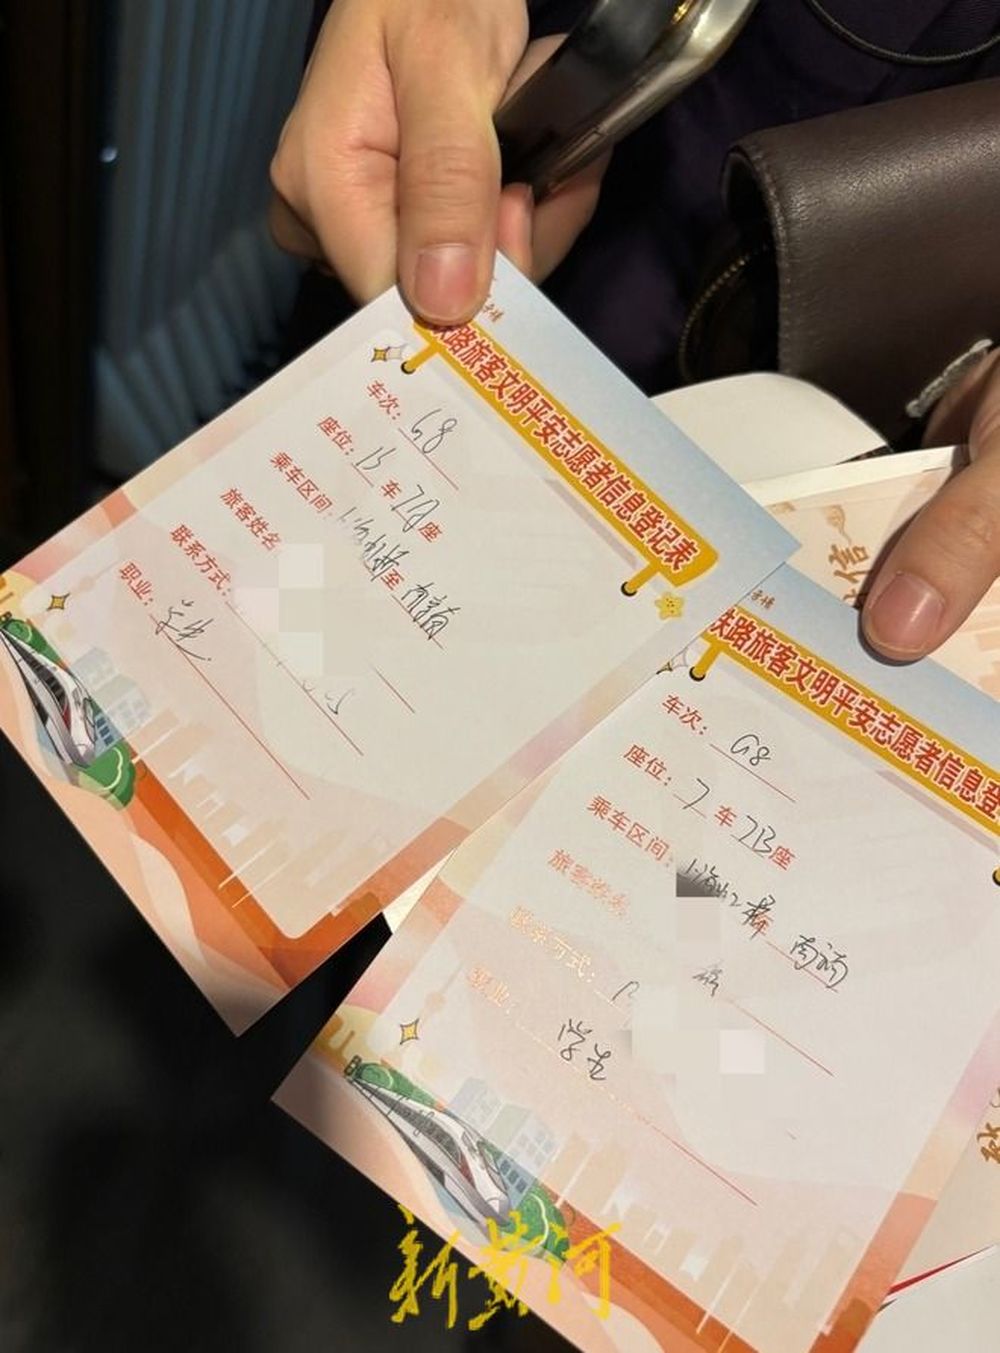 铁路旅客文明平安志愿者信息登记表
车次：G8
座位：15车7D座
乘车区间：上海虹桥至济南
旅客姓名
联系方式：
职业：学生
铁路旅客文明平安志愿者信息登
车次：G8
座位：7车7B座
乘车区间：上海虹桥 济南
旅客姓名：
联系方式：
职业：学生
新黄河